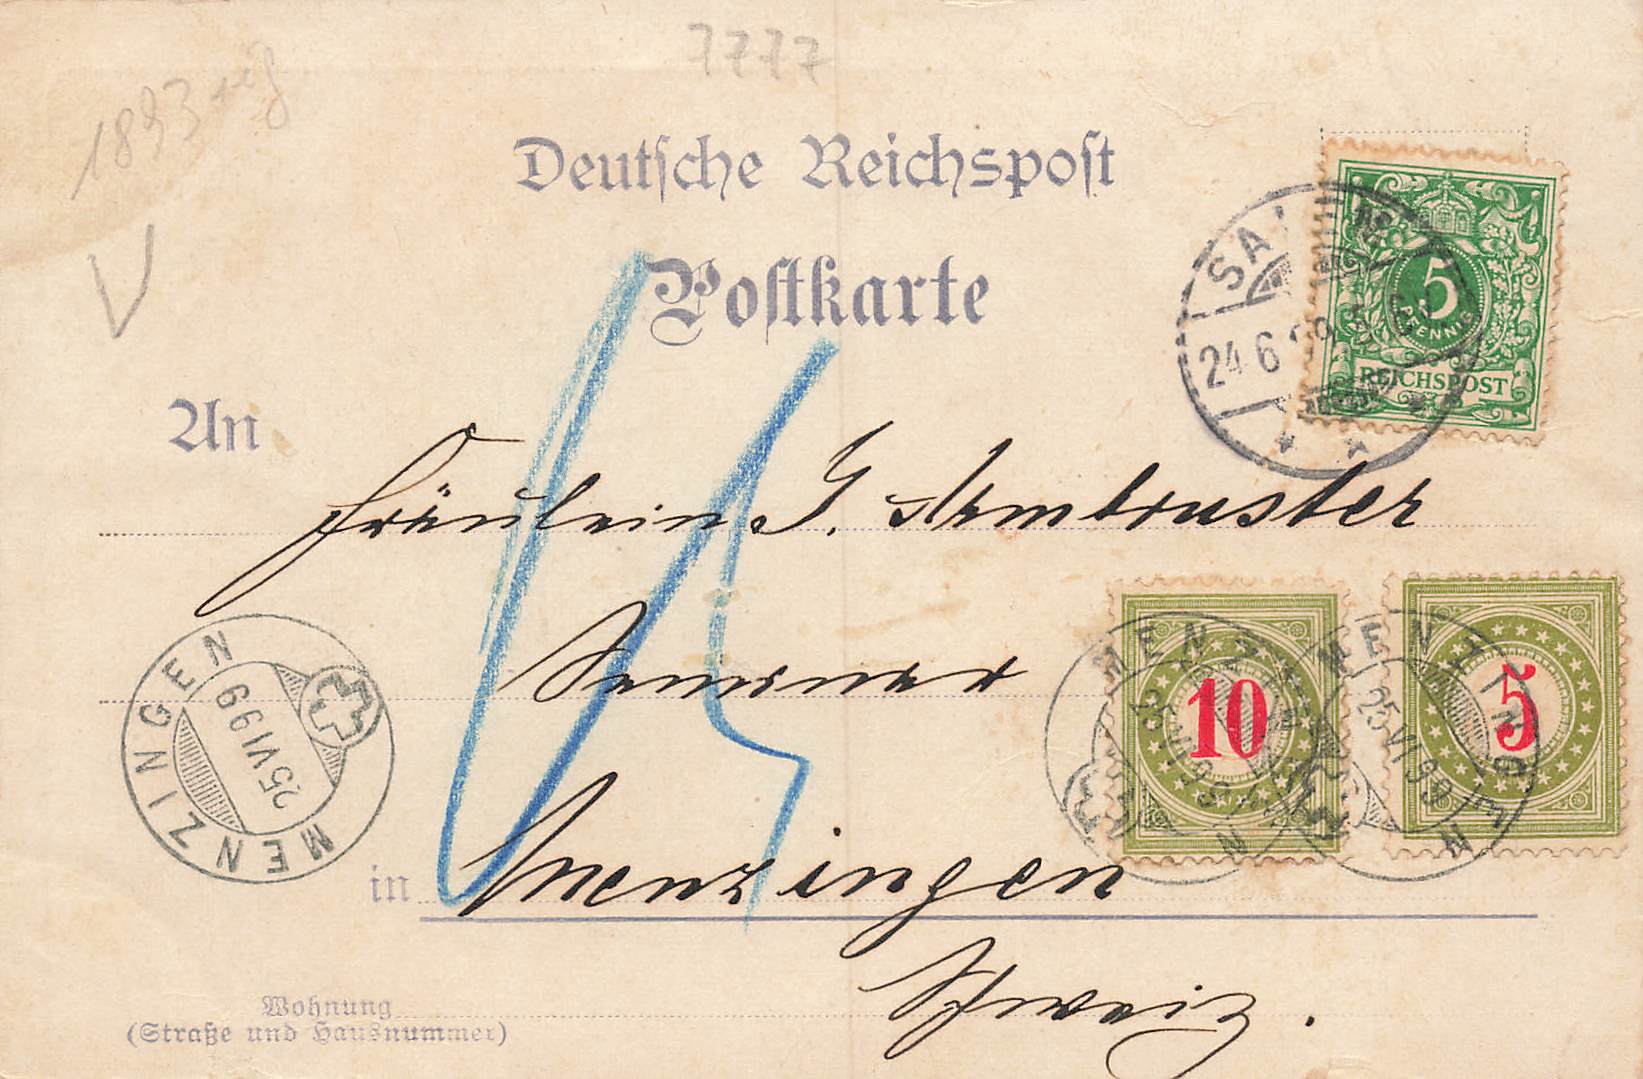 7777
1893
V
Deutsche Reichspost
Postkarte
5
PFENNIG
REICHSPOST
24 6
An
Fräulein J. Armbruster
Seminar
MENZINGEN
25 VI 99
MENZINGEN
10
MENZINGEN
25 VI 99
5
15
in Menzingen
Schweiz.
Wohnung
(Straße und Hausnummer)